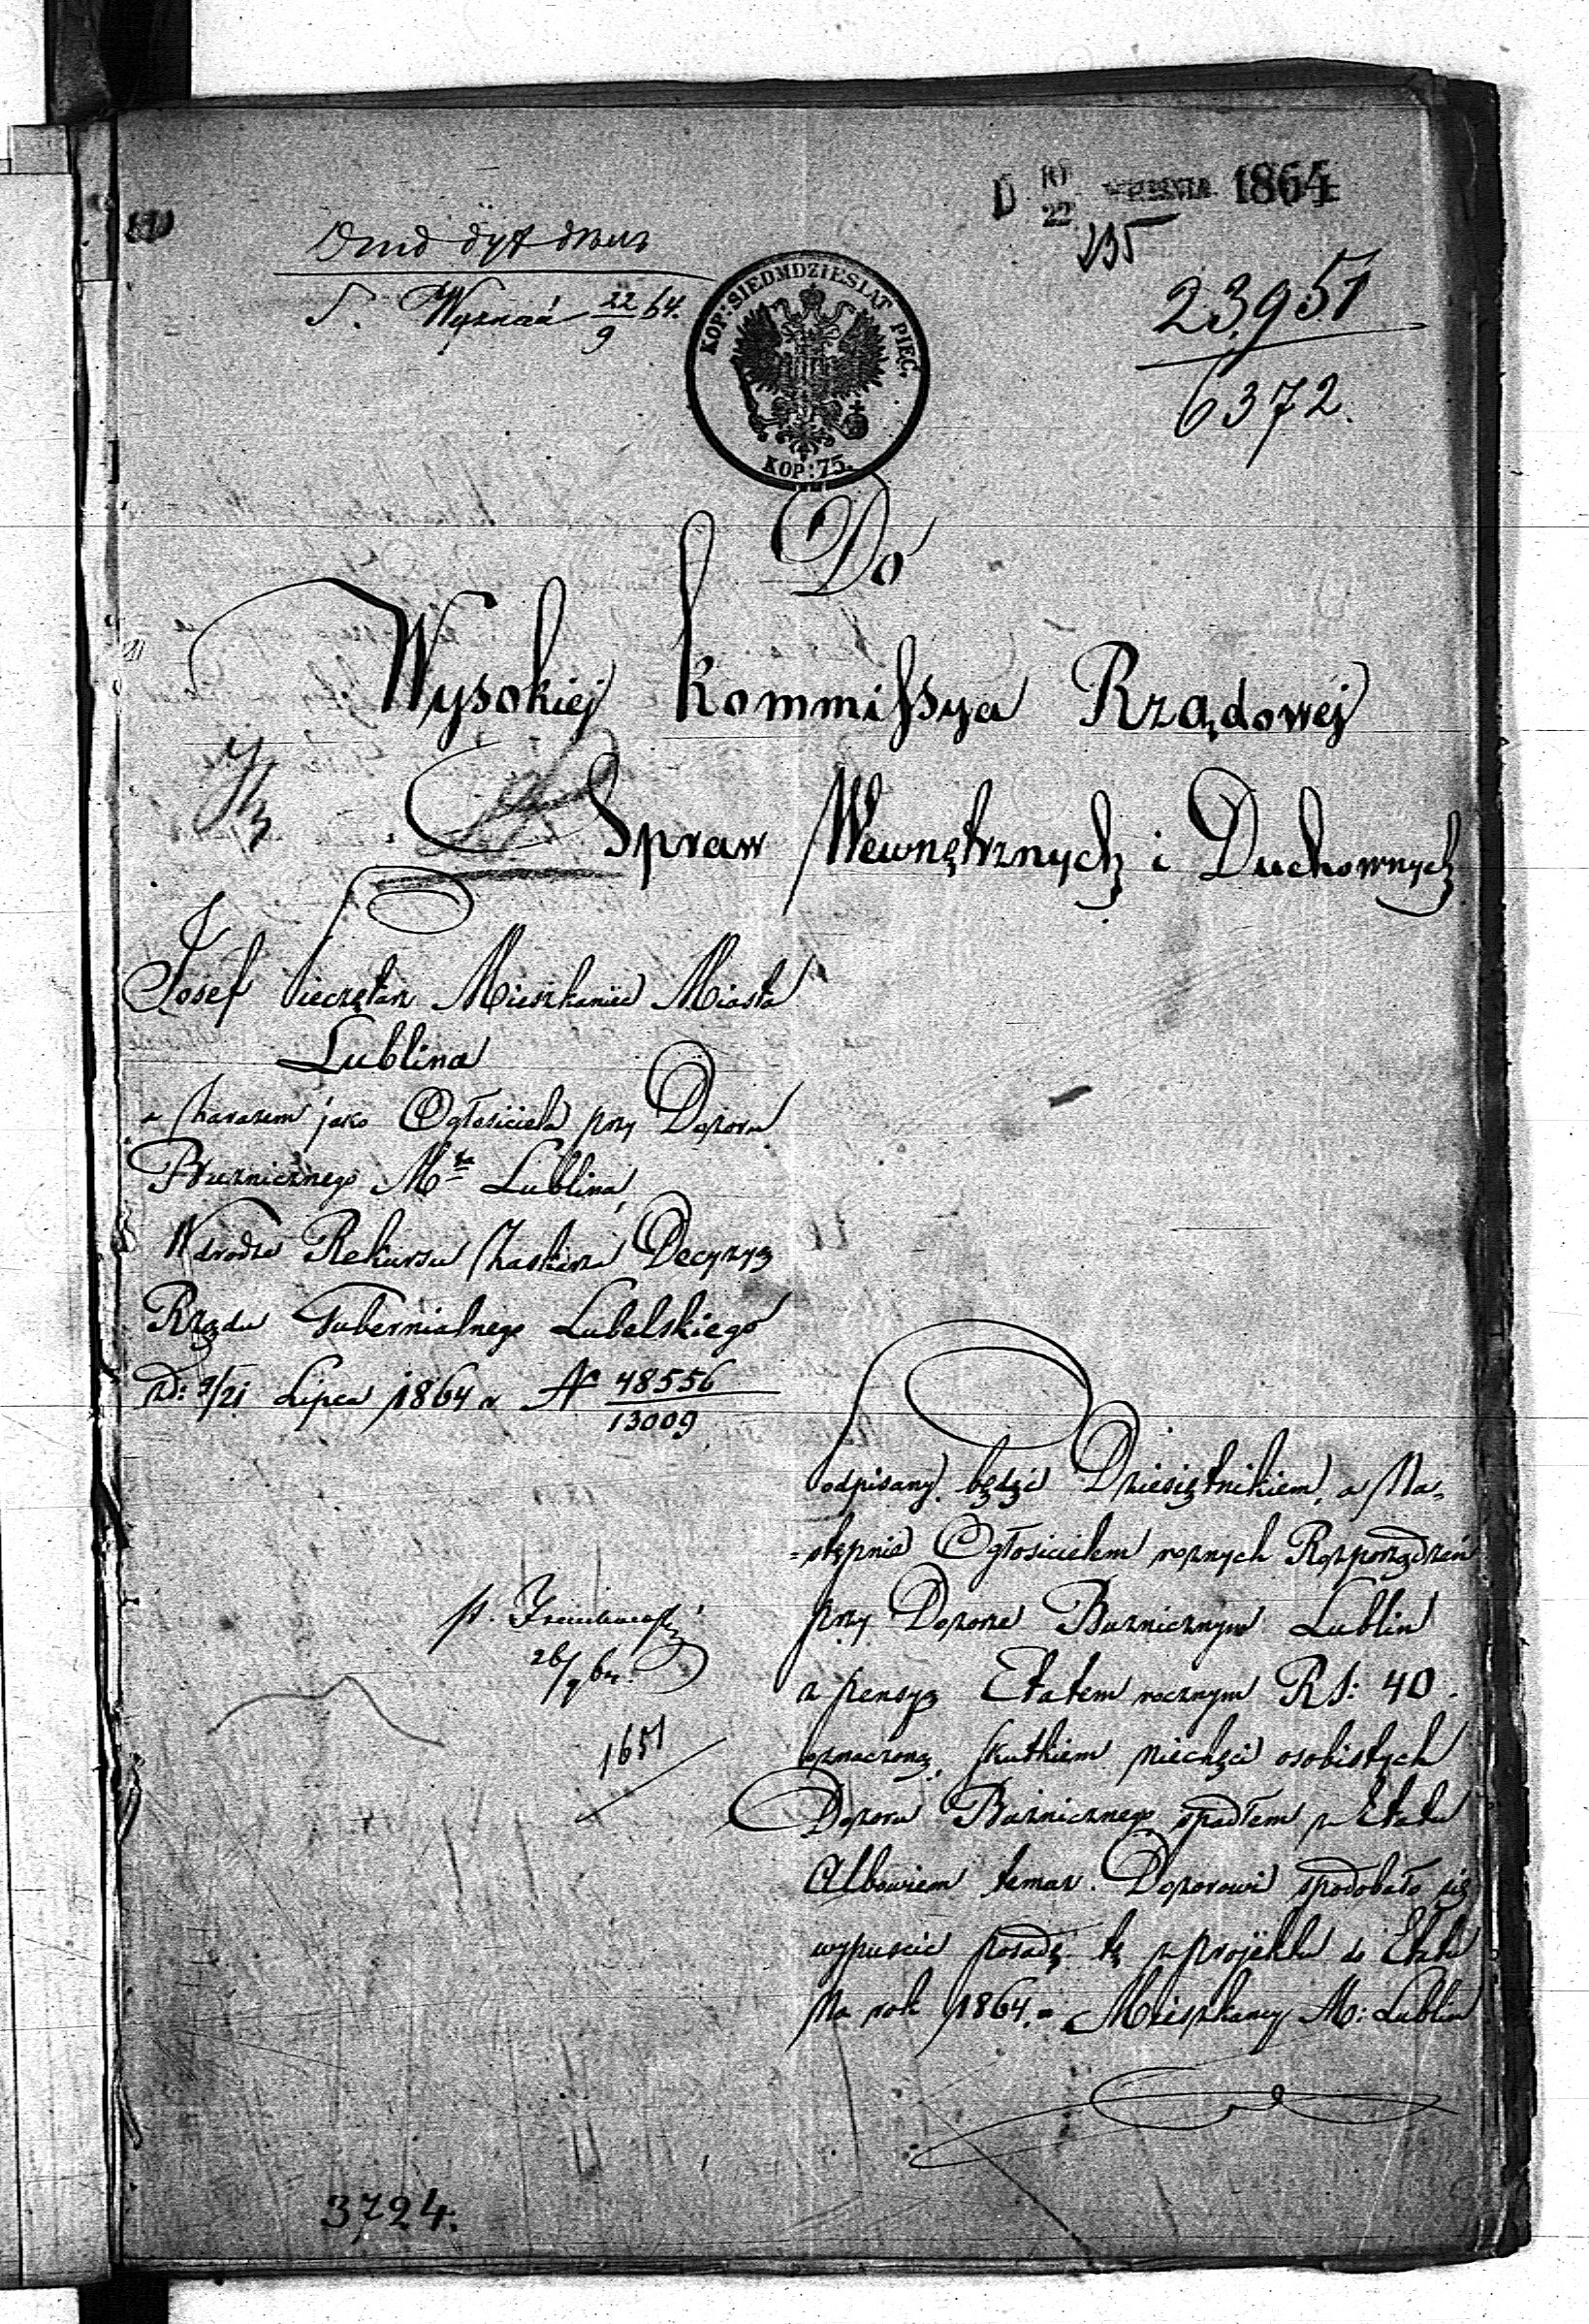 D 10/22 WRZEŚNIA 1864
235
S. Wyznań 22/9 64.
23951
6372.
KOP: SIEDMDZIESIĄT PIĘĆ.
KOP: 75.
Do
Wysokiej Kommissya Rządowej
Spraw Wewnętrznych i Duchownych
Josef Pieczętarz Mieszkaniec Miasta
Lublina
a zarazem jako Ogłosiciela przy Dozoru
Buznicznego Mta Lublina,
W drodze Rekursu Zaskarza Decyzyę
Rządu Gubernialnego Lubelskiego
z D: 9/21 Lipca 1864 r N 48556/13009
Podpisany będąc Dziesiętnikiem, a Na=
=stępnie Ogłosicielem roznych Rozporządzeń
przy Dozorze Buznicznym Lublin
z pensyą Etatem rocznym RS: 40.
oznaczoną, skutkiem niechęci osobistych
Dozoru Buznicznego, spadłem z Etatu
Albowiem temuz Dozorowi spodobało się
wypuscic posadę tę z projektu do Etatu
Na rok 1864. = Mieszkancy M: Lublin
26/9 64.
1651
3724.